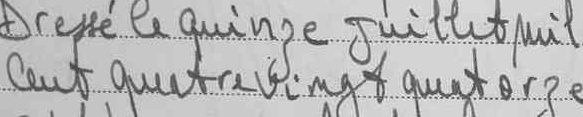 Dressé le quinze Juillet mil
Cent quatre vingt quatorze